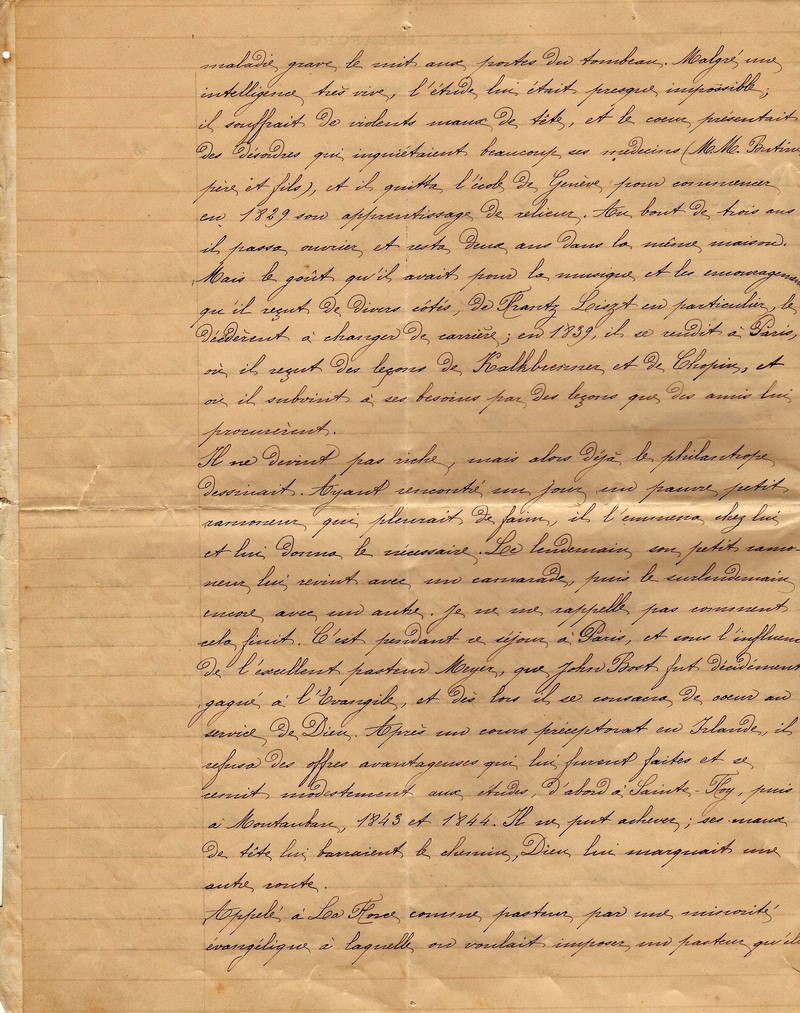 maladie grave le mit aux portes du tombeau. Malgré une
intelligence très vive, l'étude lui était presque impossible;
il souffrait de violents maux de tête, et le coeur présentait
des désordres qui inquiétaient beaucoup ses médecins (M.M. Butini
père et fils), et il quitta l'école de Genève pour commencer
en 1829 son apprentissage de relieur. Au bout de trois ans
il passa ouvrier et resta deux ans dans la même maison.
Mais le goût qu'il avait pour la musique et les encouragemen
qu'il reçut de divers côtés, de Frantz Liszt en particulier, le
décidèrent à changer de carrière; en 1839, il se rendit à Paris,
où il reçut des leçons de Kalkbrenner et de Chopin, et
où il subvint à ses besoins par des leçons que des amis lui
procurèrent.
Il ne devint pas riche, mais alors déjà le philantrope
dessinait. Ayant rencontré un jour un pauvre petit
ramoneur qui pleurait de faim, il l'emmena chez lui
et lui donna le nécessaire. Le lendemain son petit ramo-
neur lui revint avec un camarade, puis le surlendemain
encore avec un autre. Je ne me rappelle pas comment
cela finit. C'est pendant ce séjour à Paris, et sous l'influenc
de l'excellent pasteur Meyer, que John Bost fut décidément
gagné à l'Evangile, et dès lors il se consacra de coeur au
service de Dieu. Après un cours préceptorat en Irlande, il
refusa des offres avantageuses qui lui furent faites et se
remit modestement aux études, d'abord à Sainte-Foy, puis
à Montauban, 1843 et 1844. Il ne put achever; ses maux
de tête lui barraient le chemin, Dieu lui marquait une
autre route.
Appelé à La Force comme pasteur par une minorité
évangélique à laquelle on voulait imposer un pasteur qu'ell